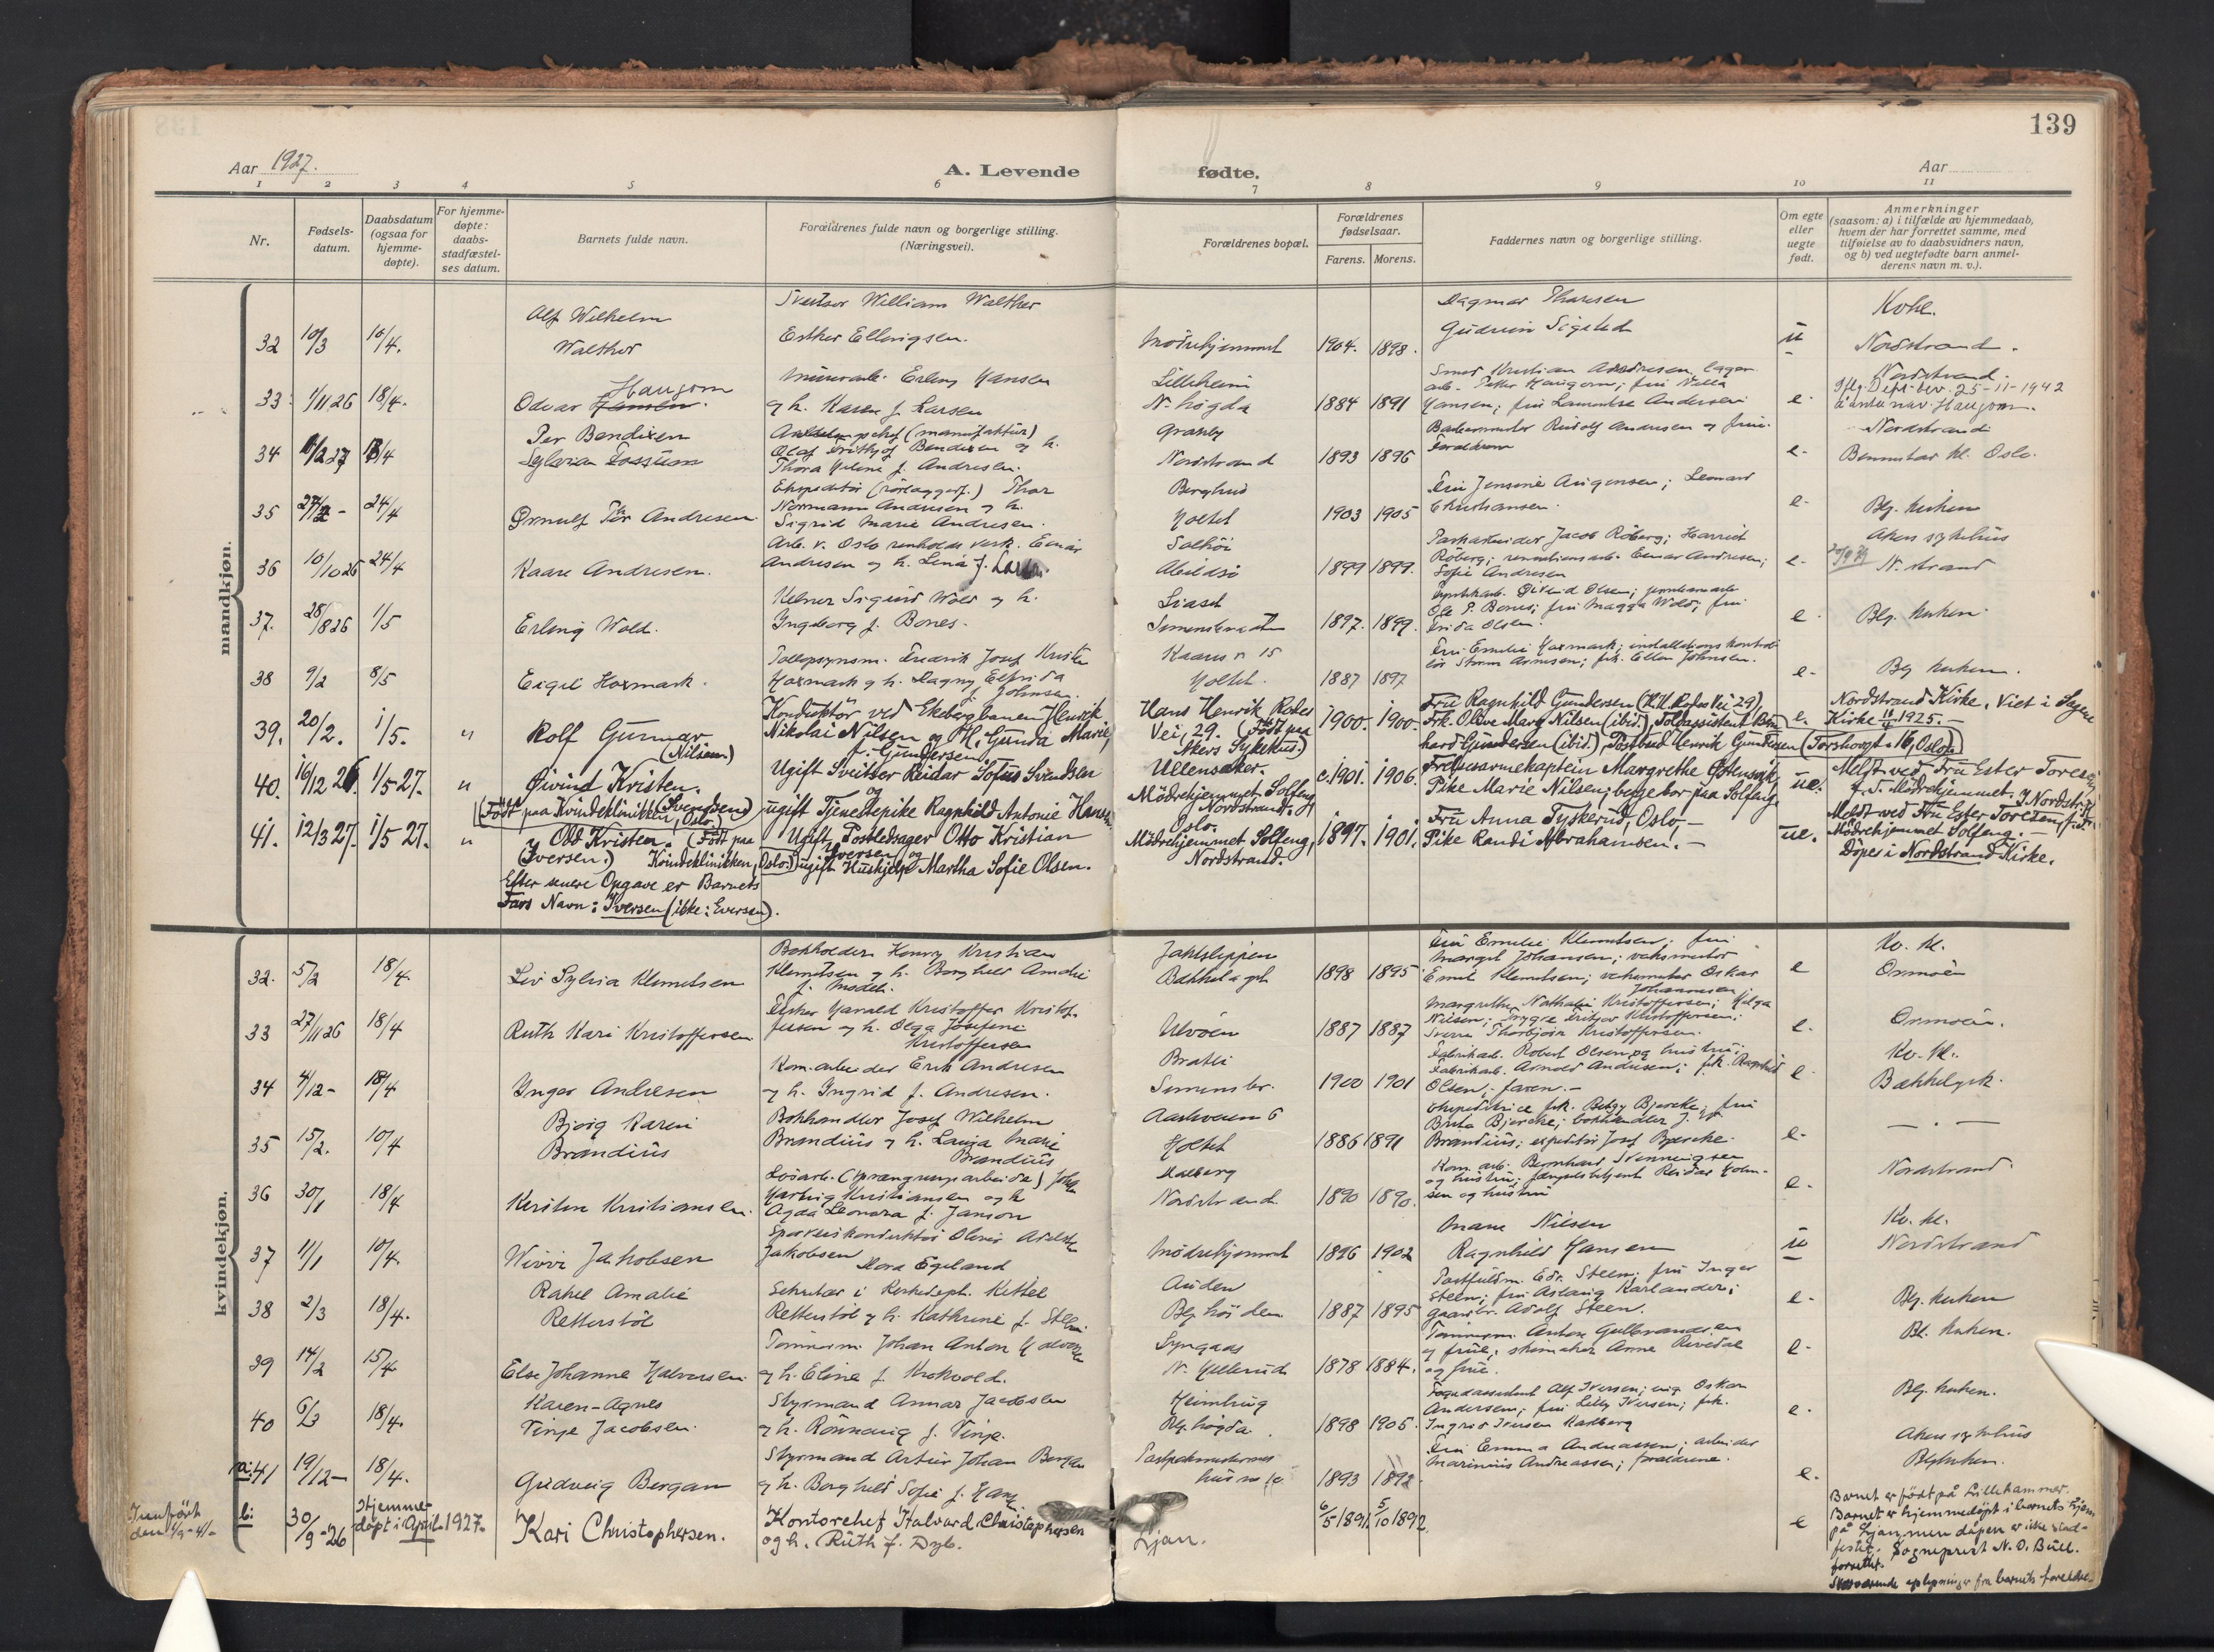 139
Aar 1927.
A. Levende
fødte.
Aar
1 2 3 4 5 6 7 8 9 10 11
Nr.
Fødsels-
datum.
Daabsdatum
(ogsaa for
hjemme-
døpte).
For hjemme-
døpte:
daabs-
stadfæstel-
ses datum.
Barnets fulde navn.
Forældrenes fulde navn og borgerlige stilling.
(Næringsvei).
Forældrenes bopæl.
Forældrenes
fødselsaar.
Farens. Morens.
Faddernes navn og borgerlige stilling.
Om egte
eller
uegte
født.
Anmerkninger
(saasom: a) i tilfælde av hjemmedaab,
hvem der har forrettet samme, med
tilføielse av to daabsvidners navn,
og b) ved uegtefødte barn anmel-
derens navn m. v.).
mandkjøn.
32 10/3 10/4.
Alf Wilhelm
Walther
Sveitser William Walther
Esther Ellingsen.
Mödrehjemmet 1904. 1898.
Dagmar Tharesen
Gudrun Sigstad
u
Nordstrand.
33 1/11 26 18/4.
Haugom
Odvar Hansen.
Murerarb. Erling Hansen
og h. Karen f. Larsen
Lilleheim
N. högda 1884 1891
Smed Kristian Andresen, lager
arb. Petter Haugom; fru Valla
Hansen; fru Laurentse Andersen
e.
Nordstrand.
Iflg. Depts bev. 25-11-1942
å anta nav. Haugom.
34 18/4
Per Bendixen
Sylvian Fossum
(manufaktur)
Olaf Frithjof Bendixen og h.
Thora Helene f. Andresen.
Granly
Nordstrand 1893 1896
Badermester Rudolf Andresen og frue.
Foreldrene
e.
Nordstrand
Oslo.
35 24/4
Ørnulf Tor Andresen
Ekspeditör Thor
Normann Andresen og h.
Sigrid Marie Andresen.
Berghus
Holtet 1903 1905
Fru Jensine Jørgensen; Leonard
Christiansen.
e.
Bg. kirken
36 10/10 26 24/4
Kaare Andresen.
Arb. v. Oslo renholds verk. Einar
Andresen og h. Lina f.
Solhöi
Abildsö 1899 1899.
Parkarbeider Jacob Röberg; Harriet
Röberg; renovationsarb. Einar Andresen;
Sofie Andresen
e.
Akers sykehus
N. strand
37. 28/8 26 1/5
Erling Wold.
Kelner Sigurd Wold og h.
Ingeborg f. Bones.
Liaset
1897. 1899.
Ole P. Bones; fru Magga Wold; fru
Frida Olsen.
e.
Bg. kirken.
38 9/2 8/5
Eigil Hoxmark.
Tollopsynsm. Fredrik Josef Kristen
Hoxmark og h. Dagny Elfrida
f. Johnsen.
Kaares v. 15
Holtet. 1887 1897
Fru Emilie Hoxmark; installationskontrol
lör Storm Arnesen; frk. Ellen Johnsen.
e.
Bg kirken.
39. 20/2. 1/5. "
Rolf Gunnar
(Nilsen.)
Konduktör ved Ekebergbanen Henrik
Nikolai Nilsen og H. Gunda Marie,
f. Gundersen.
Hans Henrik Rodes
Vei, 29. (Født paa
Akers Sykehus.)
1900. 1900.
Fru Ragnhild Gundersen (H.H. Rodes Vei 29),
Frk. Olive Marg Nilsen (ibid.), Tolassistent Bern
hard Gundersen (ibid.), Postbud Henrik Gundersen (Torshovgt. 16, Oslo.)
e.
Nordstrand Kirke. Viet i Sagene
Kirke 1925.-
40. 16/12 26. 1/5 27. "
Øivind Kristen.
(Svendsen)
(Født paa Kvindeklinikken, Oslo.)
Ugift Sveitser Reidar Sofus Svendsen
og
ugift Tjenestepike Ragnhild Antonie Hansen.
Ullensaker.
Mödrehjemmet Solfeng,
Nordstrand.
c. 1901. 1906.
Frelsesarmekaptein Margrethe Østensvik,
Pike Marie Nilsen; begge bor paa Solfeng.
ue.
Meldt ved Fru Ester Toresen,
f. T. Mödrehjemmet. Nordstr. K.
41. 12/3 27. 1/5 27. "
Odd Kristen. (Født paa
(Iversen.) Kvindeklinikken, Oslo.)
Efter senere Opgave er Barnets
Fars Navn: Iversen (ikke: Eversen).
Ugift Postledsager Otto Kristian
Iversen og
ugift Huskjelp Martha Sofie Olsen.
Oslo.
Mödrehjemmet Solfeng,
Nordstrand.
1897. 1901.
Fru Anna Tyskerud, Oslo,
Pike Randi Abrahamsen.
ue.
Meldt ved Fru Ester Toresen, f. T.
Mödrehjemmet Solfeng.
Döpes i Nordstrand Kirke.
kvindekjøn.
32. 5/2 18/4.
Liv Sylvia Klemetsen
Bokholder Henry Kristian
Klemetsen og h. Borghild Amalie
Jakkslippen
Bækkelaget 1898 1895
Fru Emilie Klemetsen; fru
Margit Johansen; vaksmester
Emil Klemetsen; Oskar
Johannessen.
e
Kv. kl.
Ormoen
33 27/11 26 18/4
Ruth Kari Kristoffersen
Fisker Harald Kristoffer Kristof-
fersen og h. Olga Josefine
Kristoffersen
Ulvöen 1887 1887
Margrethe Nathalie Kristoffersen; Helga
Nilsen; Trygve Fritjov Kristoffersen;
Sverre Thorbjörn Kristoffersen.
e.
Ormoen.
34 4/12 - 18/4
Inger Andresen
Kom. arbeider Erik Andresen
og h. Ingrid f. Andresen.
Bratli
Simensbr. 1900 1901
Fabrikarb. Robert Olsen og hustru;
Fabrikarb. Arnold Andresen; frk. Ragnhild
Olsen; faren.-
e
Kv. kl.
Bækkelgsk.
35 15/2. 10/4
Bjorg Karin
Brandius
Bokhandler Josef Wilhelm
Brandius og h. Lauja Marie
Brandius
6
Holtet 1886 1891
Ekspeditrice frk. Betzy Bjercke; fru
Bjercke; bokhandler J. W.
Brandius; ekspeditör Josef Bjercke.
e.
— . —
36 30/1 18/4
Kirsten Kristiansen.
(Sprængningsarbeider)
Hartvig Kristiansen og h
Agda Leonora f. Janson
Malberg
Nordstrand 1890 1890.
Kom. arb. Bernhard Svenningsen
og hustru; fængselsbetjent Reidar Holm-
sen og hustru
e.
Nordstrand.
37 11/1 10/4.
Wivvi Jakobsen
Sporveiskonduktör Oliver Adolf
Jakobsen
Nora Egeland
Mödrehjemmet 1896 1902
Marie Nilsen
Ragnhild Hansen
u
Kv. kl.
Nordstrand
38 2/3 18/4.
Rakel Amalie
Retterstöl
Sekretær i Kirkedept. Kittel
Retterstöl og h. Kathrine f. Steen.
Auden
Bg. höiden 1887 1895
Postfuldm. Edv. Steen; fru Inger
Steen; fru Aslaug Karlander;
gaardbr. Adolf Steen.
e.
Bg. kirken
39 14/2 15/4
Else Johanne Halvorsen.
Tömmerm. Johan Anton Halvorsen
og h. Eline f. Krokvold.
Syngaas
N. Hellerud 1878 1884.
Tömmerm. Anton Gulbrandsen
og frue; skomaker Arne Rivedal
og frue.
e.
Bl. kirken.
40 6/3 18/4.
Karen-Agnes
Vinje Jacobsen.
Styrmand Annar Jacobsen
og h. Rönnaug f. Vinje.
Heimhug
Bg. högda. 1898 1905.
Alf Iversen; ing. Oskar
Andersen; fru Lilly Iversen; frk.
Ingrid Iversen Karlberg
e.
Bg. kirken.
a: 41 19/12 - 18/4.
Gudveig Bergan
Styrmand Artur Johan Bergan
og h. Borghild Sofie f. Hans
1893 1892
Fru Emma Andreassen; arbeider
Marinius Andreassen; foreldrene.
e.
Akers sykehus
Bg. kirken.
Innført
b: 30/9 - 26
Hjemme-
døpt i April 1927.
Kari Christophersen.
Kontorchef Halvard Christophersen
og h. Ruth f. Dyb.
Ljan.
6/5 1891. 5/10 1892.
e
Barnet er født på Lillehammer.
Barnet er hjemmedøpt i barnets hjem
på Ljan, men dåpen er ikke stad-
festet. Sogneprest N. O. Bull.
forrettet.
Nærværende oplysninger fra barnets foreldre.